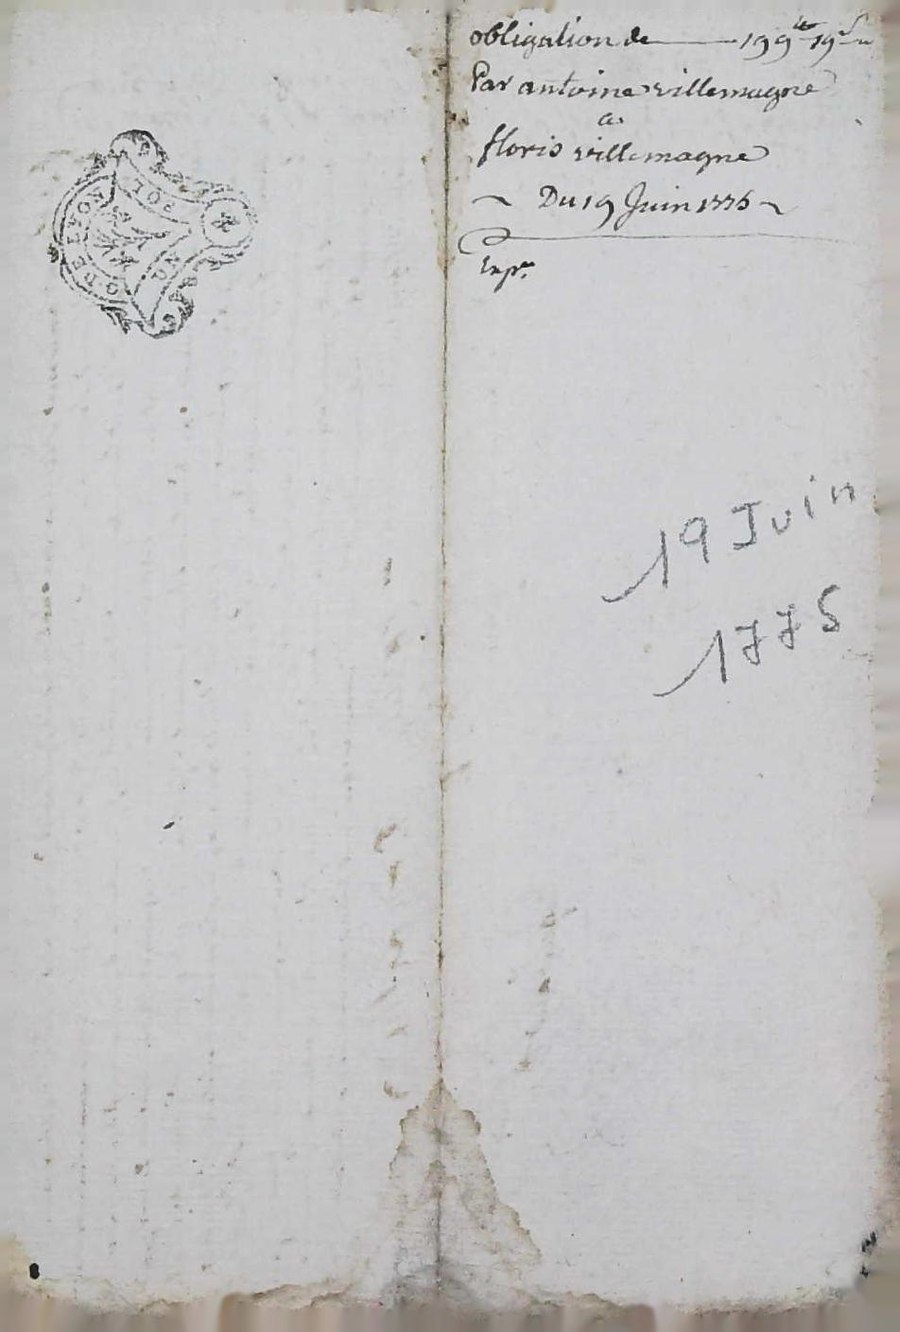 obligation de ——— 199lt 19s
Par antoine villemagne
a
floris villemagne
Du 19 Juin 1775
Expn.
19 Juin
1775
DE LYON